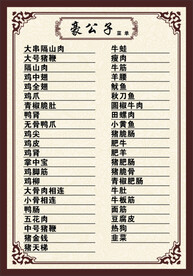 豪公子 菜单
大串隔山肉
大号猪鞭
隔山肉
鸡中翅
鸡全翅
鸡爪
青椒脆肚
鸭肾
无骨鸭爪
鸡尖
鸡皮
鸡肾
掌中宝
鸡脚筋
鸡柳
大骨肉相连
小骨相连
鸭肠
五花肉
中号猪鞭
猪金钱
猪天梯
牛蛙
瘦肉
牛筋
羊腰
鱿鱼
秋刀鱼
圆椒牛肉
田螺肉
小黄鱼
青椒肥肠
肥牛
肥羊
猪肥肠
猪脆骨
青椒肥肠
牛肚
牛板筋
面筋
豆腐皮
热狗
韭菜